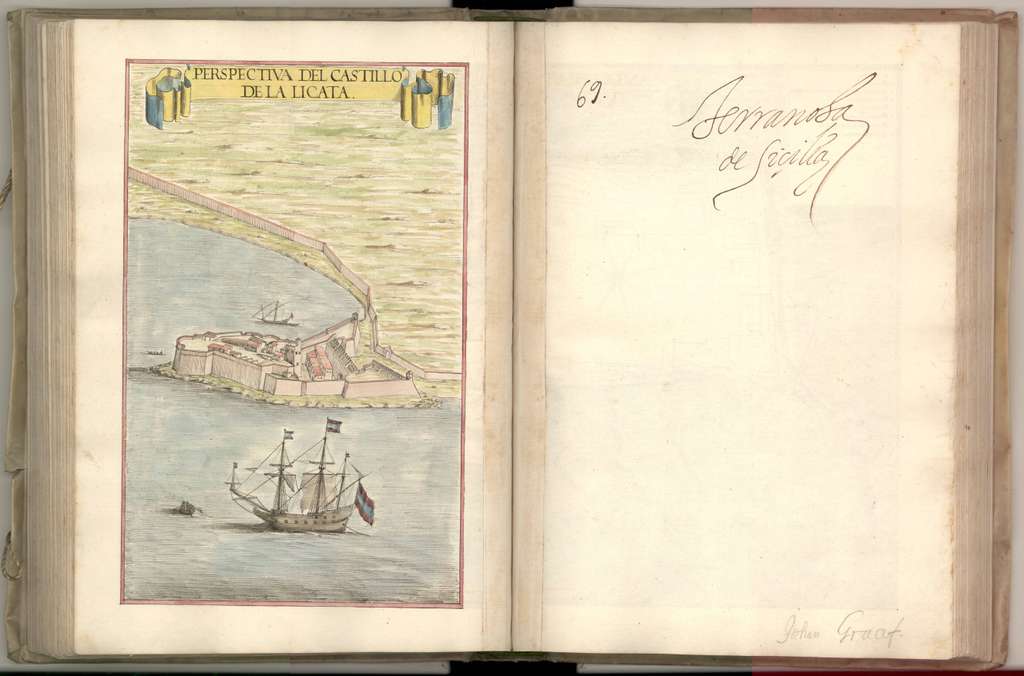 PERSPECTIVA DEL CASTILLO
DE LA LICATA.
69.
Terranoba
de Siçilia
Johan Graaf.